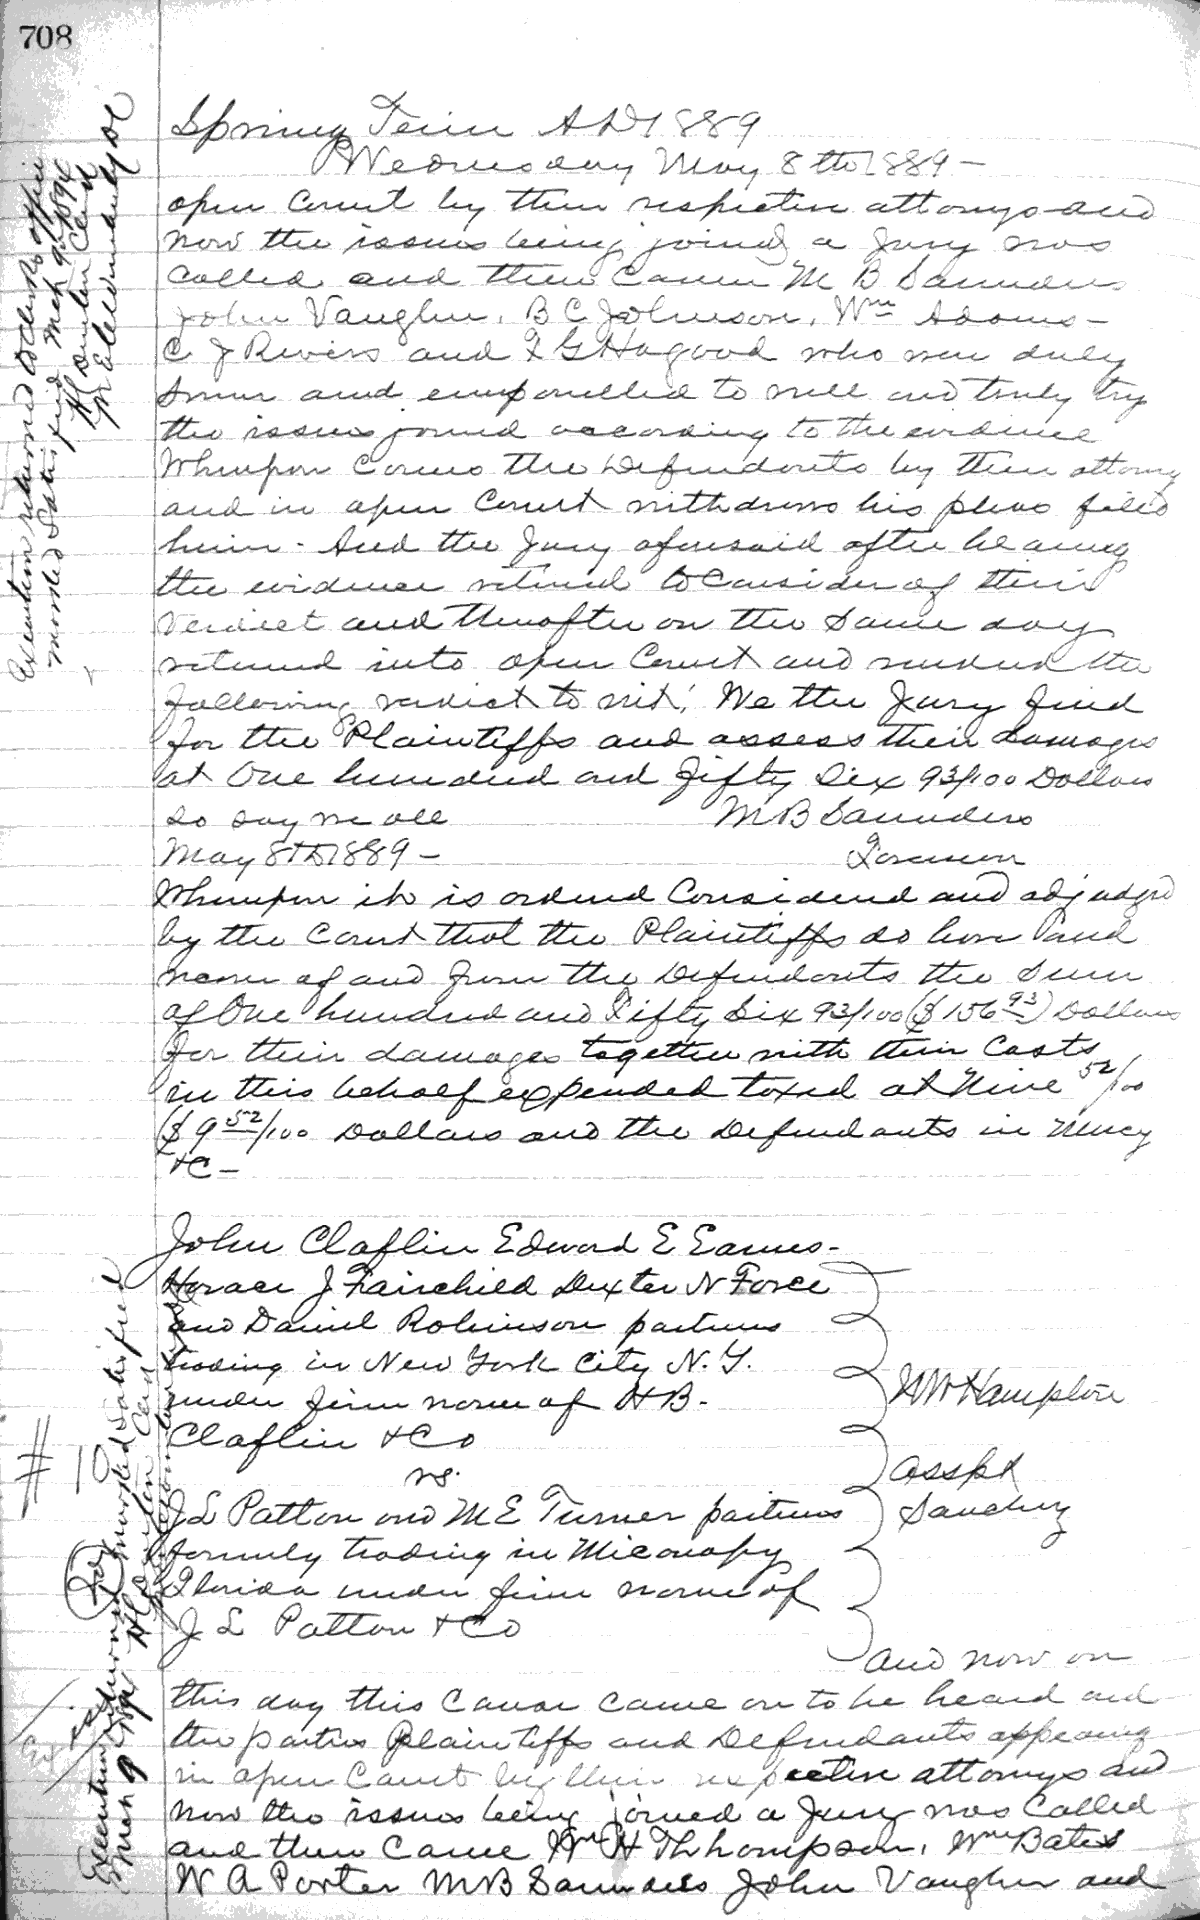 708
Spring Term AD 1889
Wednesday May 8th 1889 –
open Court by their respective attornys and
now the issues being joined a Jury was
called and then came M B Saunders
John Vaughn, B C Johnson, Wm Adams –
C J Rivers and F G Hagood who were duly
sworn and empanelled to well and truly try
the issues joined according to the evidence
Whereupon comes the Defendants by their attorny
and in open Court withdraws his pleas filed
herein. And the Jury aforesaid after hearing
the evidence retired to Consider of their
verdict and thereafter on the same day
returned into open Court and rendered the
following verdict to wit; We the Jury find
for the Plaintiffs and assess their damages
at One hundred and Fifty Six 93/100 Dollars
So say we all M B Saunders
May 8th 1889 – Foreman
Whereupon it is ordered Considered and adjudged
by the Court that the Plaintiffs do have and
recover of and from the Defendants the Sum
of One hundred and Fifty Six 93/100 ($156 93) Dollars
for their damages together with their Costs
in this behalf expended taxed at Nine 52/100
($9 52/100 Dollars and the Defendants in Mercy
&C –
Execution returned to Clerks office
marked Satisfied Mch 9th 1894
John Claflin Edward E Eames –
Horace J Fairchild Dexter N Force
and Daniel Robinson partners
trading in New York City N.Y.
under firm name of H B.
Claflin & Co
vs.
J L Patton and M E Turner partners
formerly trading in Micanopy
Florida under firm name of
J L Patton & Co
W W Hampton
Asspt
Sanchez
# 10
Execution returned marked Satisfied
Mch 9 1894
And now on
this day this Cause came on to be heard and
the parties Plaintiffs and Defendants appearing
in open Court by their respective attornys and
now the issues being joined a Jury was Called
and then Came Wm H Thhompson, Wm Bates
W A Porter M B Saunders John Vaughn and